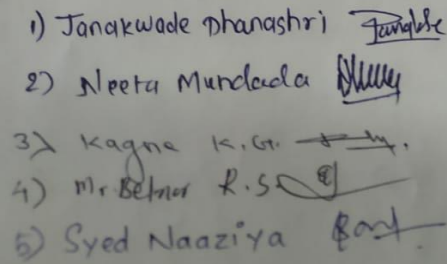 1) Janakwade Dhanashri
2) Neeta Mundada
3) Kagne K.G.
4) Mr. Belnor R.S.
5) Syed Naaziya